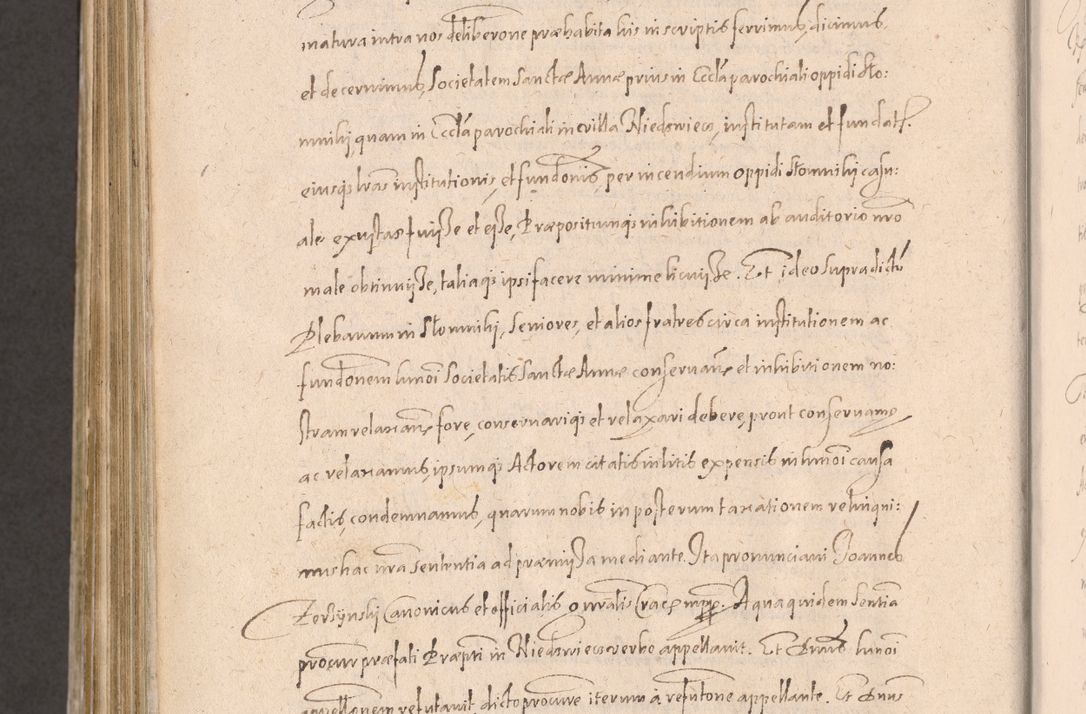 matura intra nos deliberone præhabita his in scriptis ferrimus, dicimus
et decernimus, Societatem Sanctæ Annæ prius in Eccl̃a parochiali oppidi Sło:
mniki, quam in Eccl̃a parochiali in villa Niedzwiecz, institutam et fundat.
eiusq̃ l̃ras institutionis, et fundonis, per incendium oppidi Słomniki casu:
ale exustas fuisse et esse, Præpositumq̃ inhibitionem ab auditorio nr̃o
male obtinuisse, taliaq̃ ipsi facere minime licuisse. Et ideo supradictũ
Plebanum in Słomniki, seniores, et alios fratres circa institutionem ac
fundonem hmõi Societatis Sanctæ Annæ conseruan̄. et inhibitionem no:
stram relaxan̄. fore, conseruariq̃ et relaxari debere, prout conseruamꝰ
ac relaxamus, ipsumq̃ Actorem citatis in litis expensis in hmõi causa
factis, condemnamus, quarum nobis in posterum taxationem relinqui:
mus hac nr̃a Sententia ad præmissa mediante. Ita pronunciaui Joannes
Zerzynski Canonicus et officialis gnralis Crac. mpp. A qua quidem Sentia
procur præfati Præpti in Niedzwiecz verbo appellauit. Et Dnus hmõi
appellonem refutauit dicto procure iterum à refutone appellante. Et Dnus